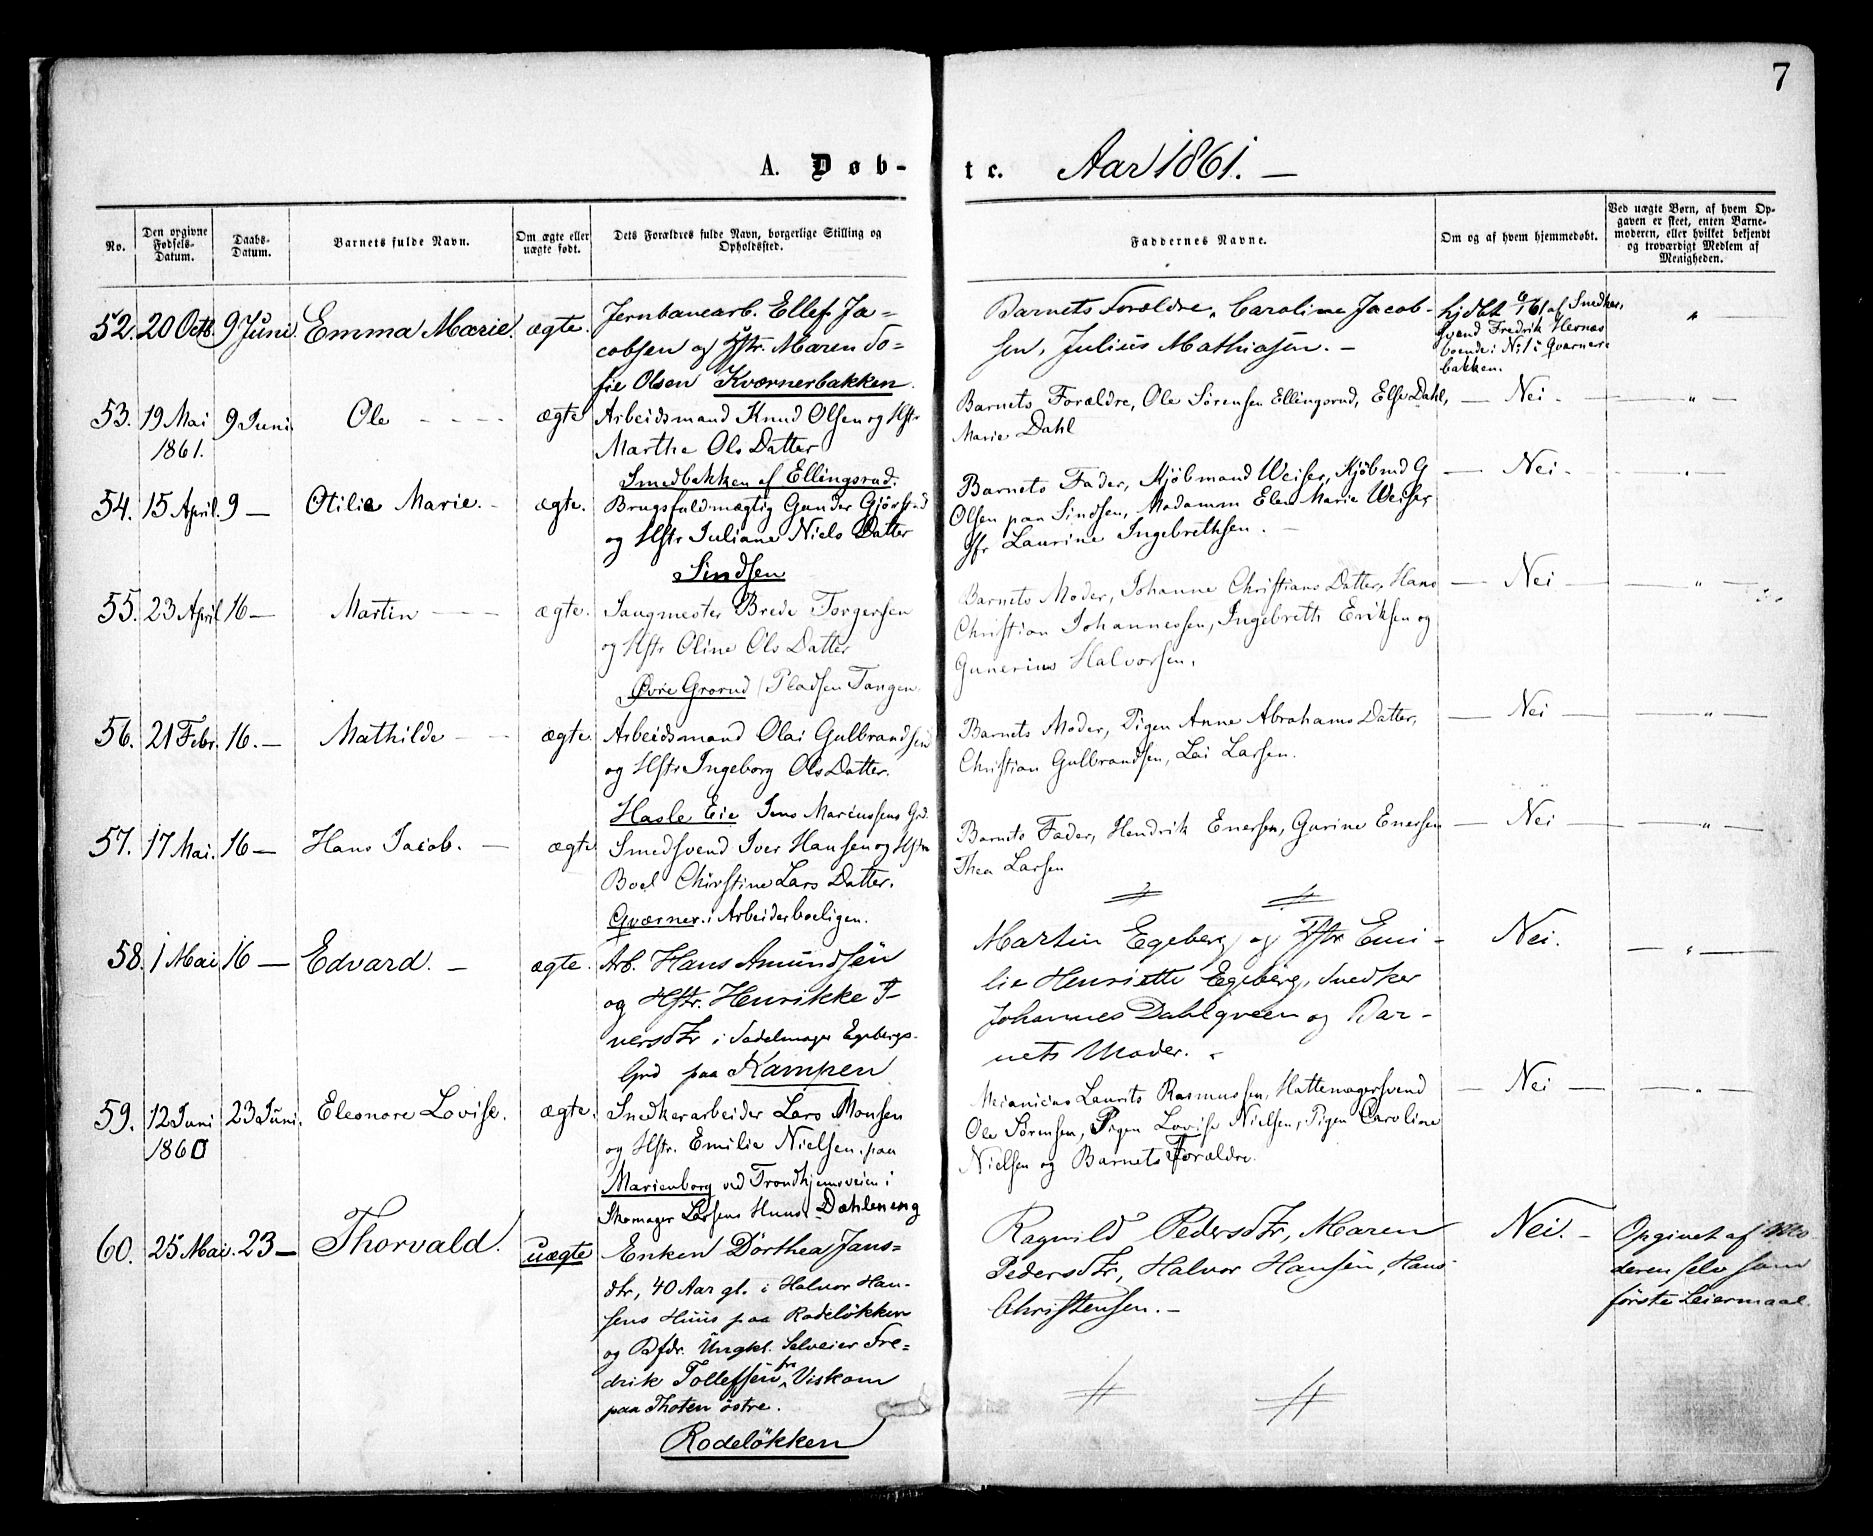 7
A. Døb-
te. Aar 1861. —
No.
Den opgivne Fødsels-Datum.
Daabs-Datum.
Barnets fulde Navn.
Om ægte eller uægte født.
Dets Forældres fulde Navn, borgerlige Stilling og Opholdssted.
Faddernes Navne.
Om og af hvem hjemmedøbt.
Ved uægte Børn, af hvem Opgaven er skeet, enten Barnemoderen, eller hvilket bekjendt og troværdigt Medlem af Menigheden.
52. 20 Octb. 9 Juni. Emma Marie. ægte.
Jernbanearb. Ellef Ja=
cobsen og Hstr. Maren So=
fie Olsen Kværnerbakken.
Barnets Forældre, Caroline Jacob-
sen, Julius Mathiasen. —
hjdbt /61 af Snedker,
svend Fredrik Hernæs
boende i No 1 i Qværner
bakken.
"
53. 19 Mai 1861. 9 Juni. Ole - - - ægte
Arbeidsmand Knud Olsen og Hstr
Marthe Ols Datter
Smedbakken af Ellingsrud.
Barnets Forældre, Ole Sørensen Ellingsrud, Else Dahl,
Marie Dahl
— Nei. — "
54. 15 April. 9 — Otilie Marie. - ægte.
Brugsfuldmægtig Gunder Gjørstad
og Hstr Juliane Niels Datter
Sindsen
Barnets Fader, Kjøbmand Weiser, Kjøbmd G
Olsen paa Sindsen, Madamm Elen Marie Weiser,
Jfr Laurine Ingebrethsen. —
— Nei. — "
55. 23 April 16 — Martin - - - ægte.
Saugmester Brede Torgersen
og Hstr Oline Ols Datter
Øvre Grorud / Pladsen Tangen
Barnets Moder, Johanne Christians Datter, Hans
Christian Johannessen, Ingebreth Eriksen og
Gunerius Halvorsen.
— Nei — "
56. 21 Febr. 16. — Mathilde - - ægte.
Arbeidsmand Olai Gulbrandsen
og Hstr Ingeborg Ols Datter.
Hasle Eie Jens Mariussens Grd.
Barnets Moder, Pigen Anne Abrahams Datter,
Christian Gulbrandsen, Lai Larsen.
— Nei — "
57. 17 Mai. 16 — Hans Jacob. — ægte
Smedsvend Iver Hansen og Hstr
Boel Christine Lars Datter.
Qværner. i Arbeiderboeligen.
Barnets Fader, Hendrik Enersen, Gurine Enersen
Thea Larsen
— Nei — "
58. 1 Mai 16 — Edvard. — ægte.
Arb. Hans Amundsen
og Hstr. Henrikke I-
versdtr i Sadelmager Egebergs.
Grd paa Kampen
Martin Egeberg og Hstr Emi-
lie Henriette Egeberg, Snedker
Johannes Dahlqveen og Bar-
nets Moder. -
Nei. — "
59. 12 Juni 1860 23 Juni. Eleonore Lovise. ægte.
Snedkerarbeider Lars Monsen
og Hstr. Emilie Nielsen. paa
Marienborg ved Trondhjemsveien i
Skomager Larsens Huus. Dæhleneng
Mecanicus Laurits Rasmussen, Hattemagersvend
Ole Sørensen, Pigen Lovise Nielsen, Pigen Caroline
Nielsen og Barnets Forældre.
— Nei — "
60. 25 Mai. 23 — Thorvald. uægte
Enken Dorthea Jans=
dtr, 40 Aar gl. i Halvor Han-
sens Huus paa Rodeløkken
og Bfdr. Ungkl. Selveier Fre=
drik Tollefsen fra Viskom
paa Thoten østre.
Rodeløkken
Ragnild Pedersdtr, Maren
Pedersdtr, Halvor Hansen, Hans
Christensen. —
Nei. -
Opgivet af Mo
deren selv som
første Leiermaal.